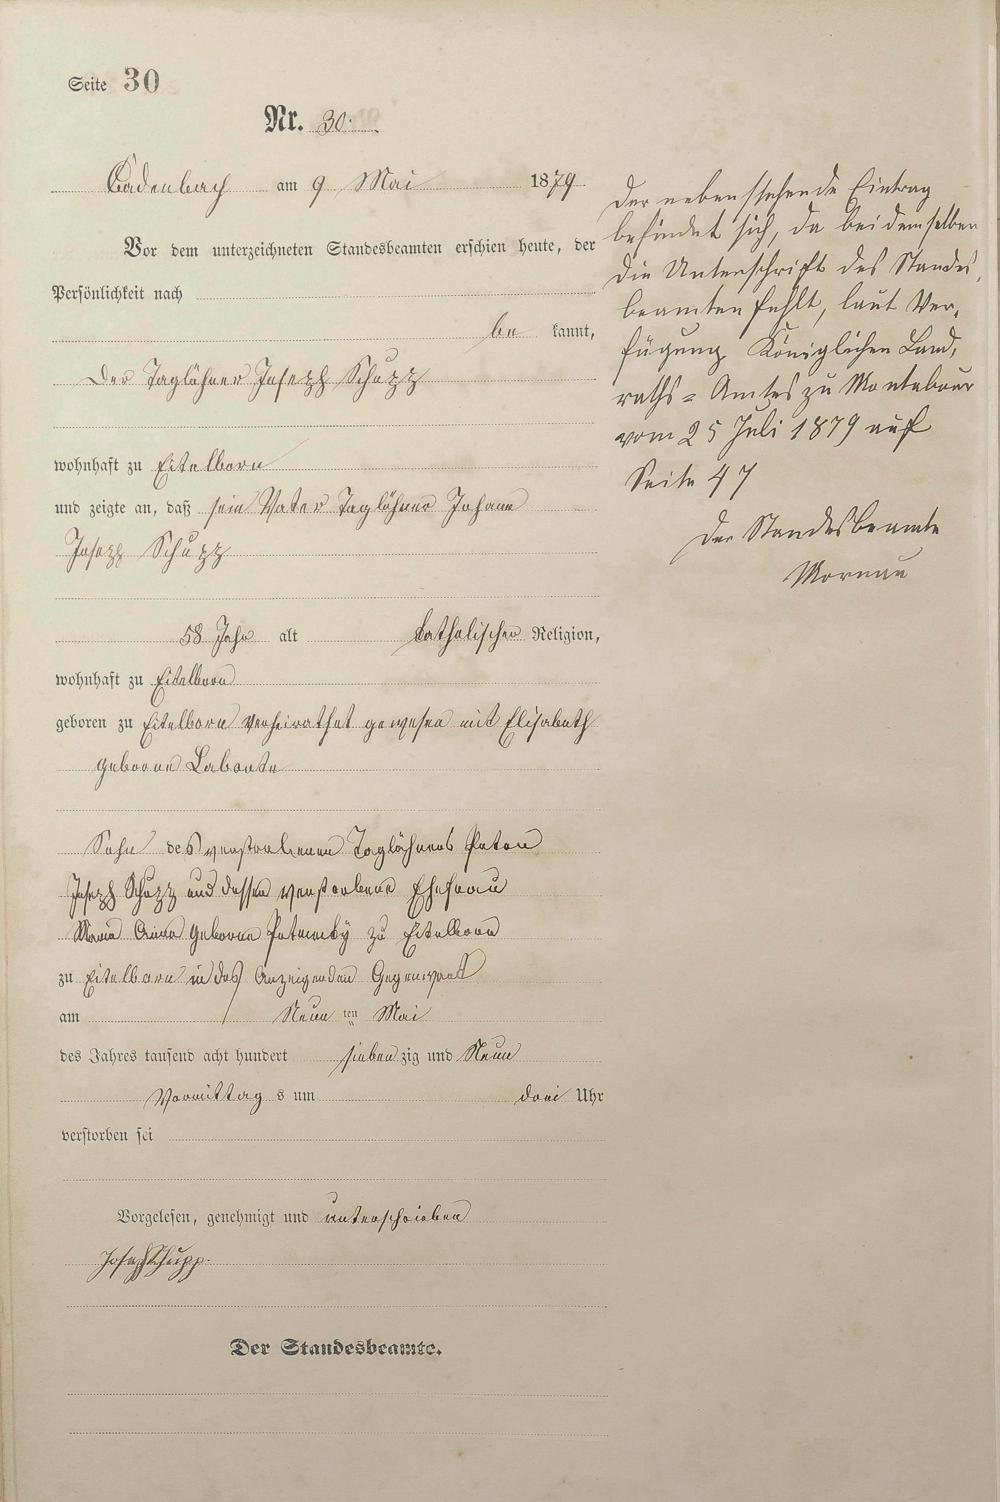 Seite 30
Nr. 30.
Cadenbach am 9 Mai 1879
Vor dem unterzeichneten Standesbeamten erschien heute, der
Persönlichkeit nach
be kannt,
Der Taglöhner Joseph Schupp
wohnhaft zu Eitelborn
und zeigte an, daß sein Vater Taglöhner Johann
Joseph Schupp
58 Jahr alt katholischer Religion,
wohnhaft zu Eitelborn
geboren zu Eitelborn verheirathet gewesen mit Elisabeth
geborne Laborte
Sohn des verstorbenen Taglöhners Peter
Joseph Schupp und dessen verstorbene Ehefrau
Maria Anna geborne zu Eitelborn
zu Eitelborn in des Anzeigenden Gegenwart
am Neun ten Mai
des Jahres tausend acht hundert sieben zig und Neun
Vormittag s um drei Uhr
verstorben sei
Vorgelesen, genehmigt und unterschrieben
Joseph Schupp.
Der Standesbeamte.
Der nebenstehende Eintrag
befindet sich, da bei demselben
die Unterschrift des Standes,
beamten fehlt, laut Ver,
fügung Königlichen Land,
raths = Amtes zu Montabaur
vom 25 Juli 1879 auf
Seite 47
Der Standesbeamte
Mornau